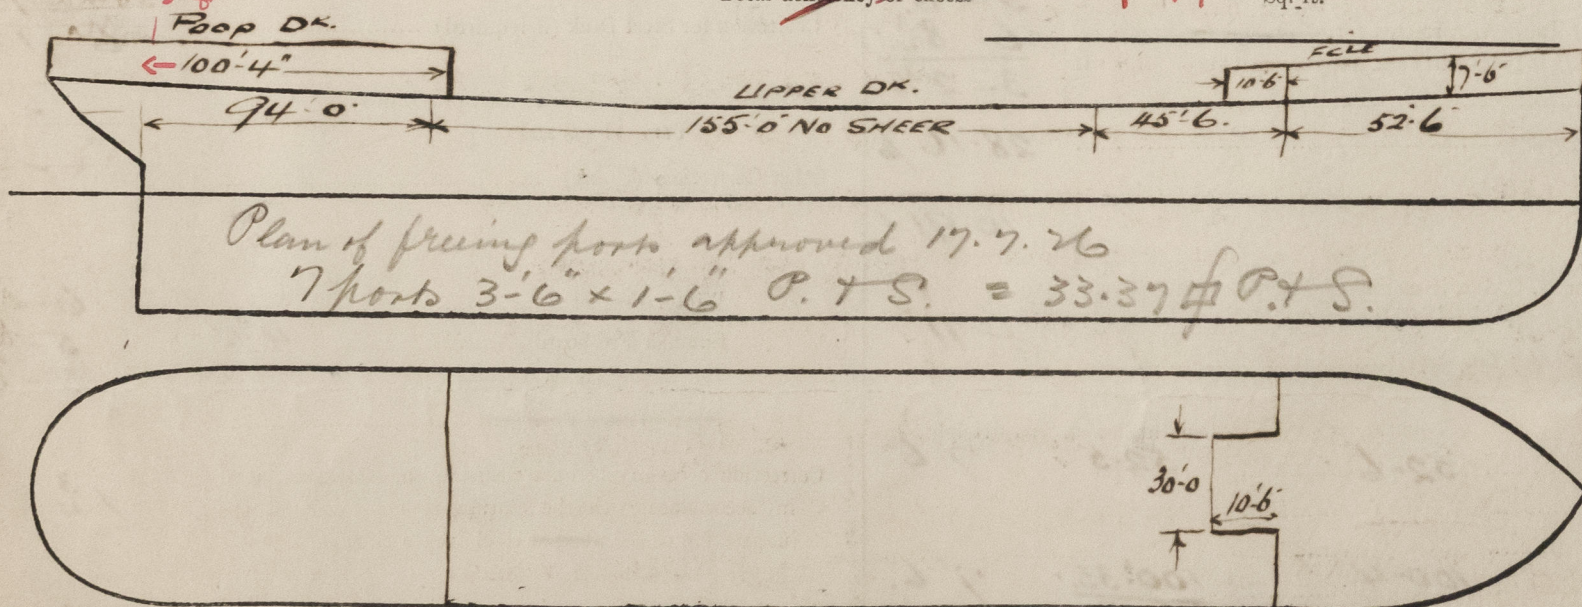 Poop Dᴷ.
100'-4"
94'-0"
UPPER DK.
155'-0" NO SHEER
FCLE
10'-6"
7'-6"
45'-6"
52'-6"
Plan of freeing ports approved 17.7.26
7 ports 3'-6" x 1'-6" P. & S. = 33.37 P. & S.
30'-0
10'-6"